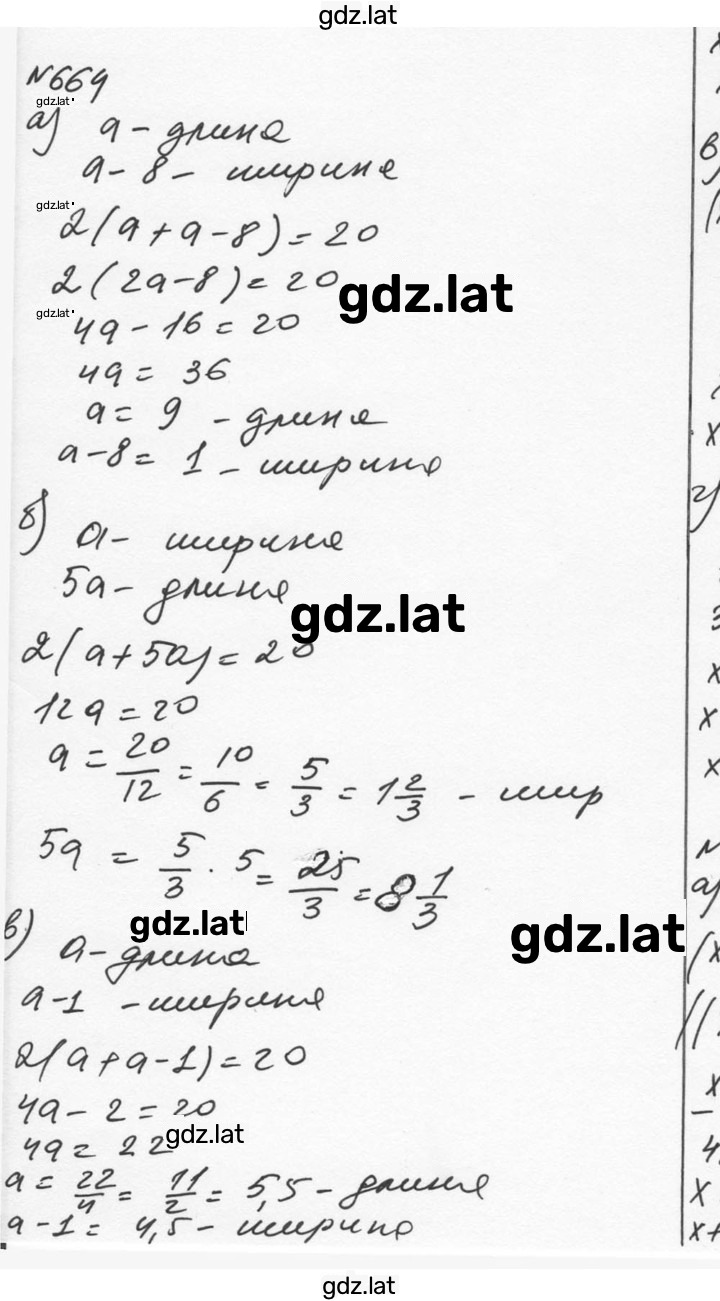 gdz.lat
№664
gdz.lat
а) а - длина
а - 8 - ширина
gdz.lat
2(а + а - 8) = 20
2(2а - 8) = 20
gdz.lat
gdz.lat
4а - 16 = 20
4а = 36
а = 9 - длина
а - 8 = 1 - ширина
б) а - ширина
5а - длина
gdz.lat
2(а + 5а) = 20
12а = 20
а = 20/12 = 10/6 = 5/3 = 1 2/3 - шир
5а = 5/3 · 5 = 25/3 = 8 1/3
gdz.lat
gdz.lat
в) а - длина
а - 1 - ширина
2(а + а - 1) = 20
4а - 2 = 20
gdz.lat
4а = 22
а = 22/4 = 11/2 = 5,5 - длина
а - 1 = 4,5 - ширина
gdz.lat